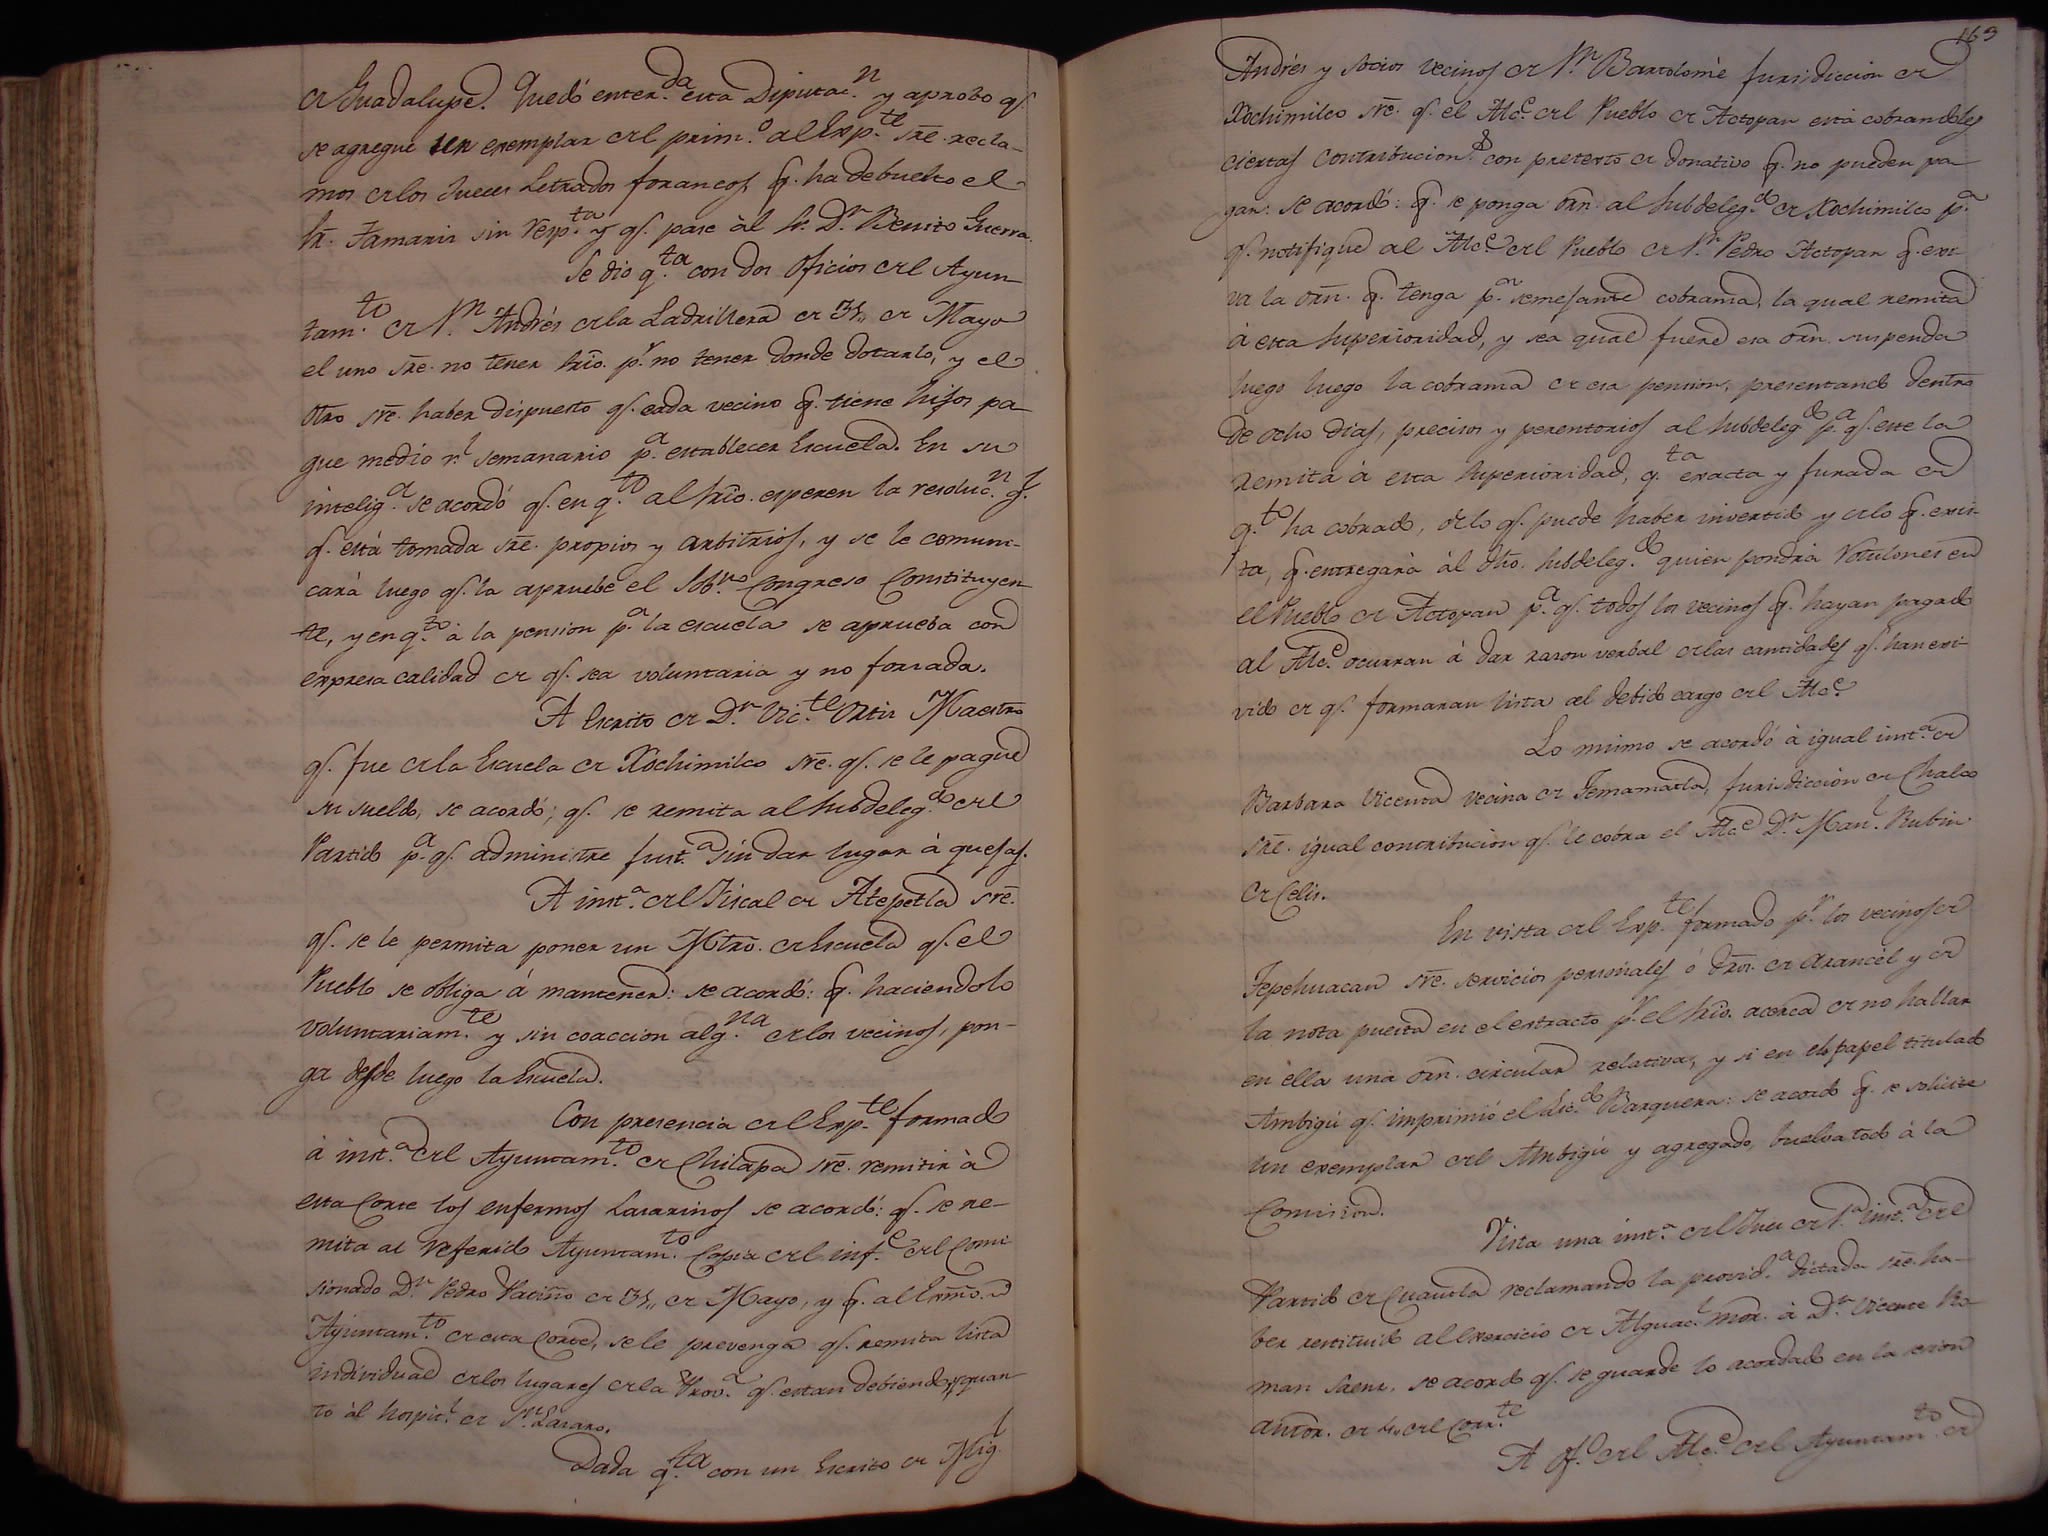 de Guadalupe. Quedó enter.da esta Diputac.n y aprobo q.e
se agregue un exemplar del prim.o al Exp.te sre. recla-
mos de los Jueces Letrados foraneos q.e ha debuelto el
Sr. Tamariz sin resp.ta y q.e pase àl Sr. D.r Benito Guerra.
Se dio q.ta con dos oficios del Ayun-
tam.to de S.n Andrés de la Ladrillera de 31,, de Mayo
el uno sre. no tener Srio. p.r no tener donde dotarlo, y el
otro sre. haber dispuesto q.e cada vecino q.e tiene hijos pa-
gue medio r.l semanario p.a establecer Escuela. En su
intelig.a se acordó q.e en q.to al Srio. esperen la resoluc.n g.l
q.e está tomada sre. propios y arbitrios, y se le comuni-
cará luego q.e la apruebe el Sob.no Congreso Constituyen-
te, y en q.to à la pension p.a la escuela se aprueba con
expresa calidad de q.e sea voluntaria y no forzada.
A Escrito de D.n Vic.te Ortiz Maestro
q.e fue de la Escuela de Xochimilco sre. q.e se le pague
su sueldo, se acordó; q.e se remita al Subdeleg.do del
Partido p.a q.e administre just.a sin dar lugar à quejas.
A inst.a del Fiscal de Atepetla sre.
q.e se le permita poner un Mtro. de Escuela q.e el
Pueblo se obliga á mantener: se acordó: q.e haciendolo
voluntariam.te y sin coaccion alg.na de los vecinos, pon-
ga desde luego la Escuela.
Con presencia del Exp.te formado
à inst.a del Ayuntam.to de Chilapa sre. remitir à
esta Corte los enfermos Lazarinos se acordó: q.e se re-
mita al referido Ayuntam.to Copia del inf.e del Comi
sionado D.n Pedro Patiño de 31,, de Mayo, y q.e al Exmo.
Ayuntam.to de esta Corte, se le prevenga q.e remita lista
individual de los lugares de la Prov.a q.e estan debiendo, y quan
to àl hospit.l de S.n Lazaro.
Dada q.ta con un Escrito de Mig.l
163
Andrés y socios vecinos de S.n Bartolomè jurisdiccion de
Xochimilco sre. q.e el Alc.e del Pueblo de Actopan està cobrandoles
ciertas contribucion.s con pretexto de donativo q.e no pueden pa-
gar: se acordó: q.e se ponga orn. al Subdeleg.do de Xochimilco p.a
q.e notifique al Alc.e del Pueblo de S.n Pedro Actopan q.e exi-
va la orn. q.e tenga p.a semejante cobranza, la qual remita
à esta Superioridad, y sea qual fuere esa orn. suspenda
luego luego la cobranza de esa pension, presentando dentro
de ocho dias, precisos y perentorios al Subdeleg.do p.a q.e este la
remita à esta Superioridad, q.ta exacta y jurada de
q.to ha cobrado, de lo q.e puede haber invertido y de lo q.e exis-
ta, q.e entregarà àl dho. Subdeleg.do quien pondrà Rotulones en
el Pueblo de Actopan p.a q.e todos los vecinos q.e hayan pagado
al Alc.e ocurran á dar razon verbal de las cantidades q.e han exi-
vido de q.e formaran lista al debido cargo del Alc.e
Lo mismo se acordó à igual inst.a de
Barbara Vicenta vecina de Temamatla, jurisdiccion de Chalco
sre. igual contribucion q.e le cobra el Alc.e D.n Man.l Rubin
de Celis.
En vista del Exp.te formado p.r los vecinos de
Tepehuacan sre. servicios personales ó dros. de arancél y de
la nota puesta en el extracto p.r el Srio. acerca de no hallar
en èlla una orn. circular relativa, y si en el papel titulado
Ambigú q.e imprimió el Lic.do Barquera: se acordó q.e se solicite
un exemplar del Ambigú y agregado, buelva todo à la
Comision.
Vista una inst.a del Juez de 1.a inst.a del
Partido de Cuautla reclamando la provid.a dictada sre. ha-
ber restituido al exercicio de Alguac.l mor. à D.n Vicente Ro-
man Saenz, se acordó q.e se guarde lo acordado en la secion
anter. de 4,, del Corr.te
A of.o del Alc.e del Ayuntam.to de